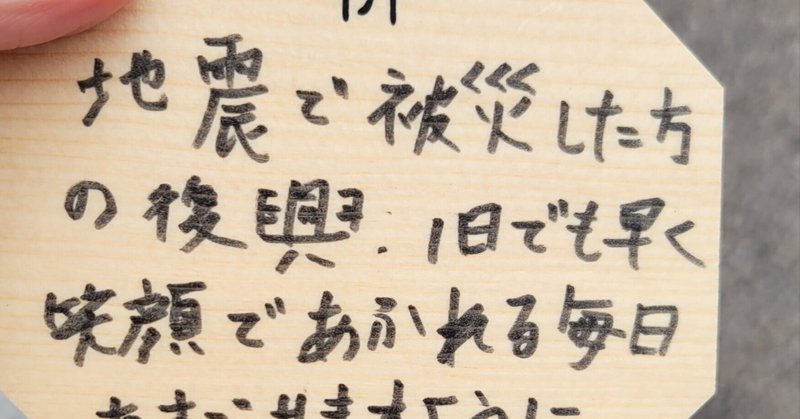 地震で被災した方
の復興、1日でも早く
笑顔であふれる毎日
ように